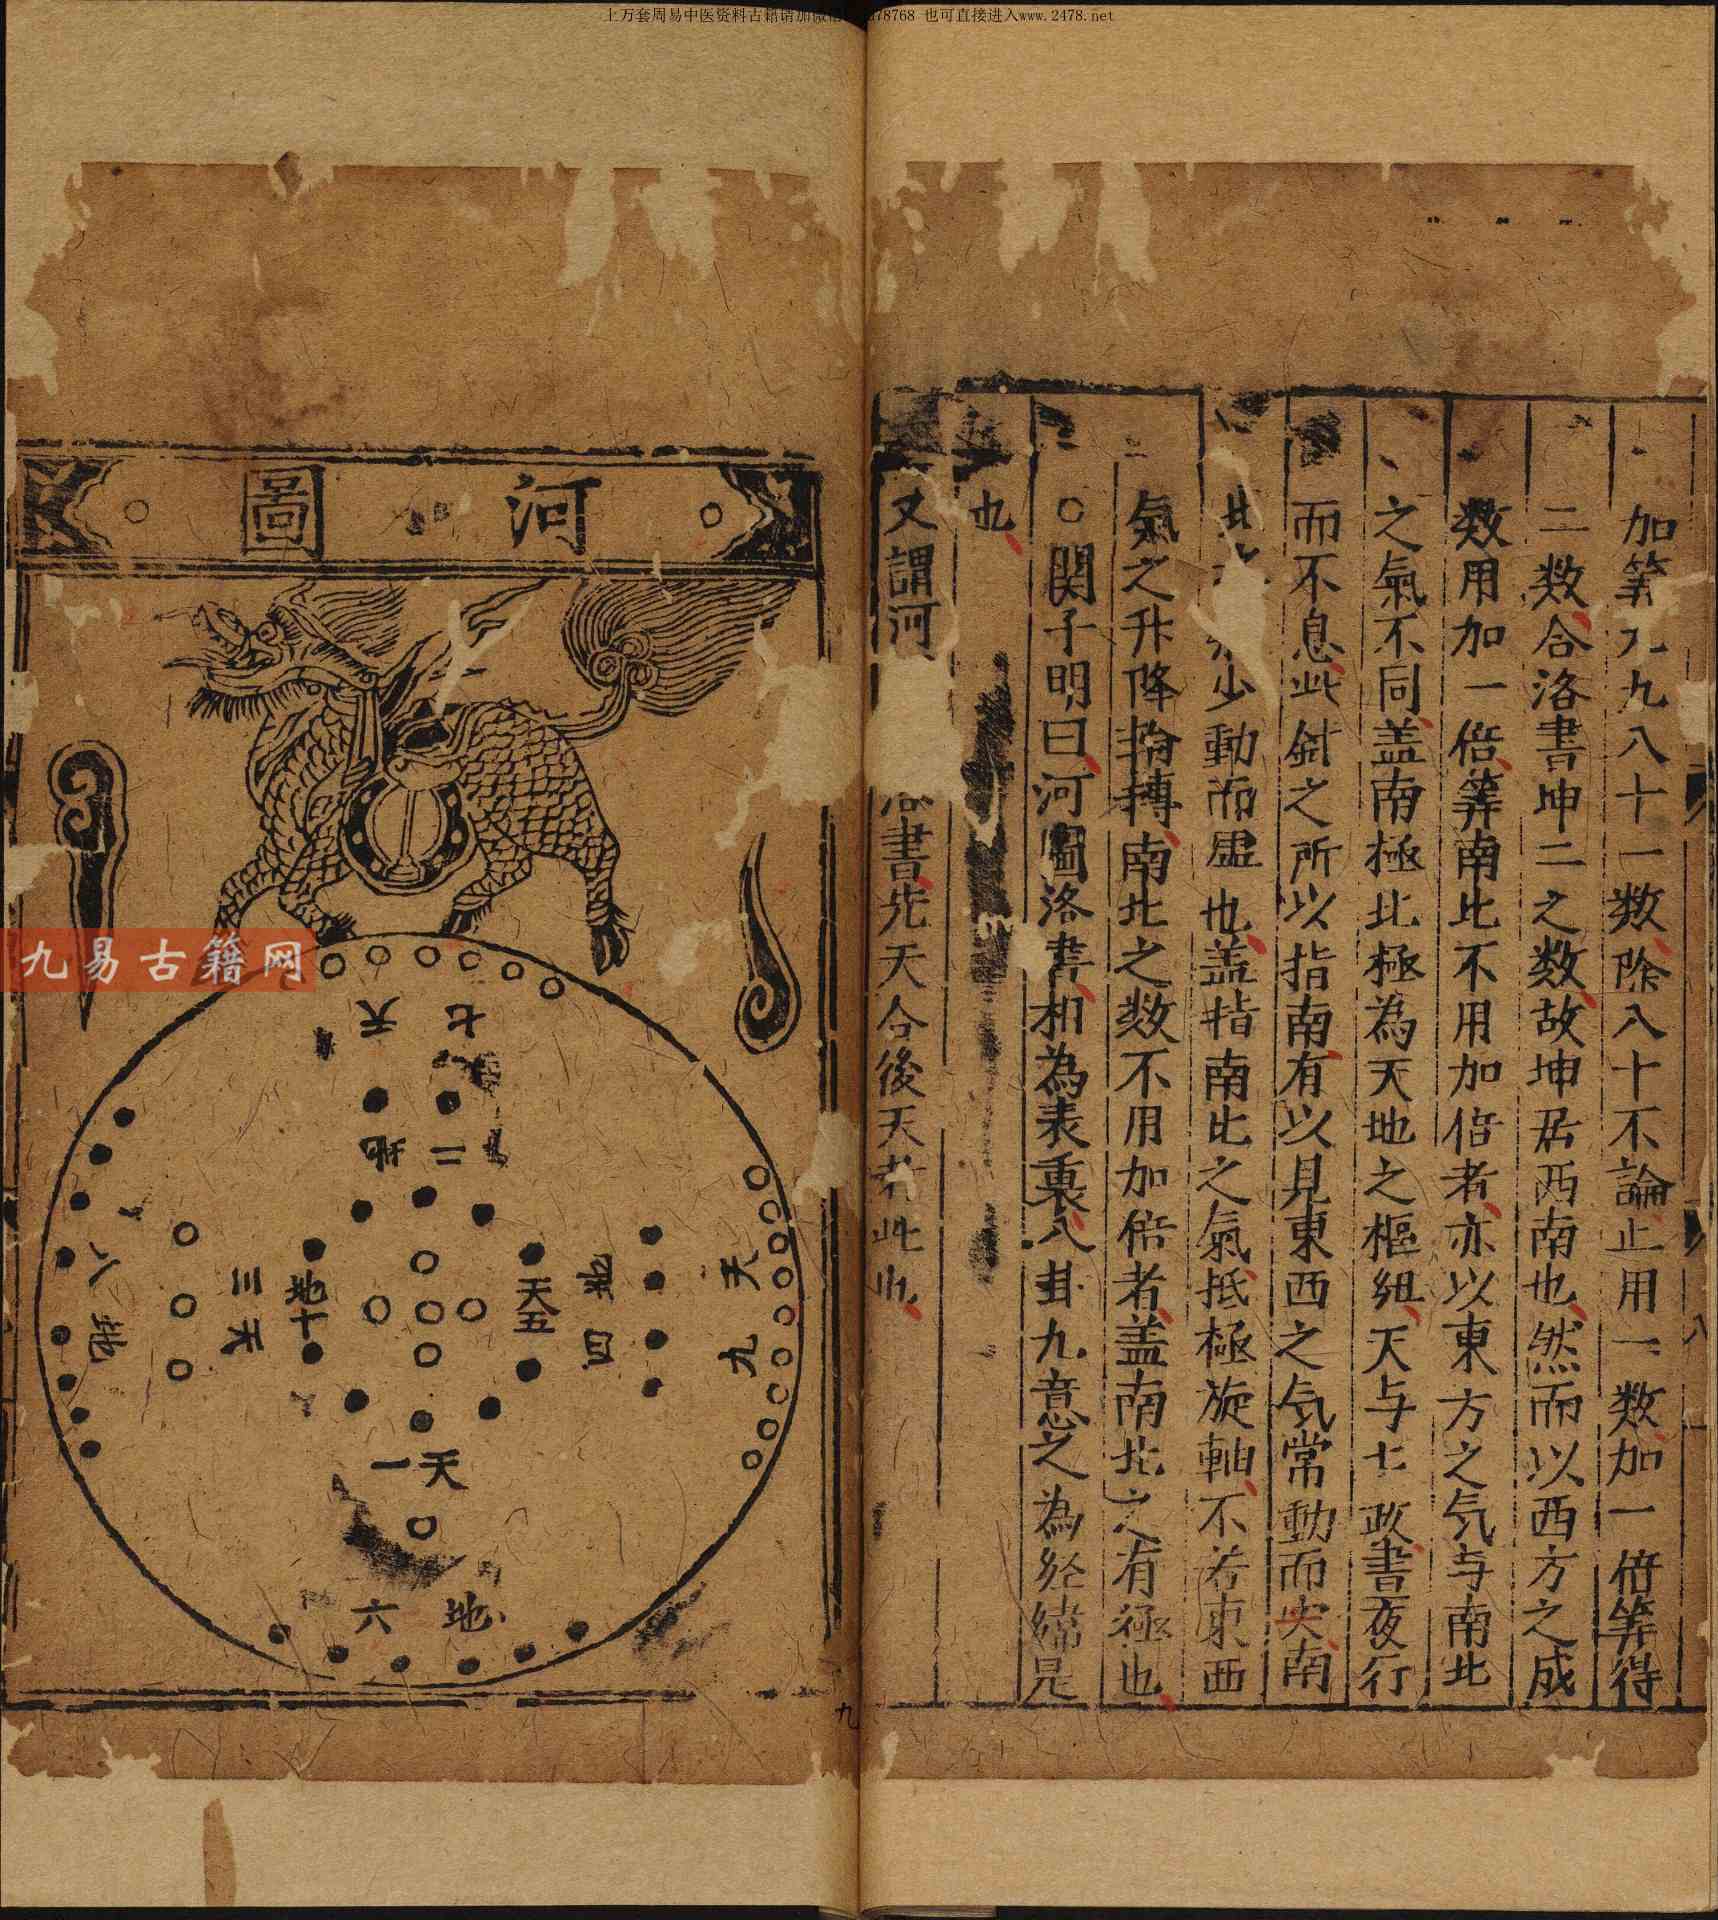 上万套周易中医资料古籍请加微信 也可直接进入www.2478.net
加筭九九八十一数除八十不論止用一数加一倍筭得
二数合洛書坤二之数故坤居西南也然而以西方之成
数用加一倍筭南北不用加倍者亦以東方之気与南北
之氣不同盖南極北極為天地之樞紐天与七政晝夜行
而不息此針之所以指南有以見東西之気常動而实南
少動而虛也盖指南北之氣抵極旋軸不若東西
氣之升降輪轉南北之数不用加倍者盖南北之有極也
○関子明曰河圖洛書相為表裏八卦九意之為経緯是
也
又謂河 洛書先天合後天者此也
河圖
天七
地二
八地
三天
地十
天五
地四
天九
天一
地六
九
九易古籍网